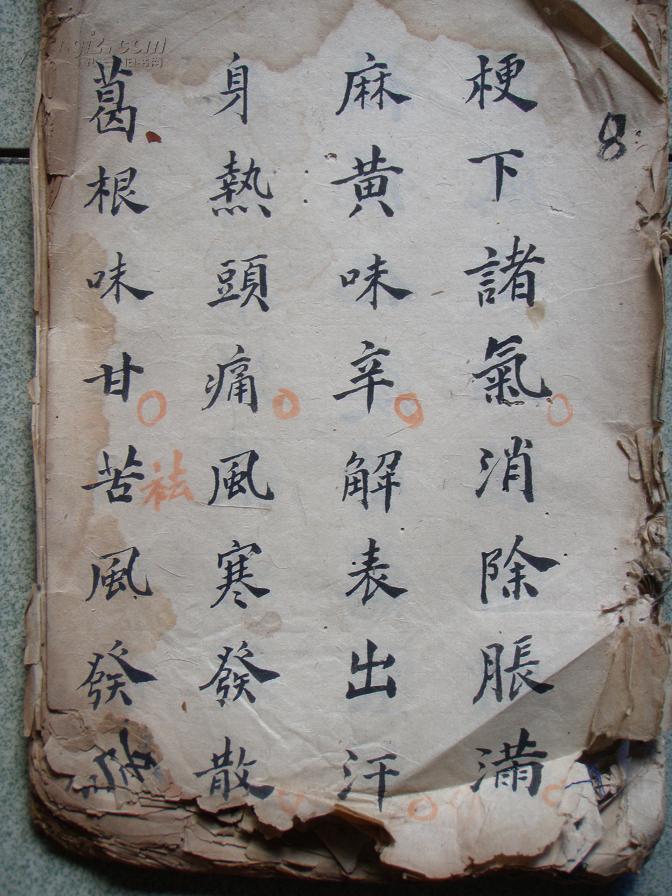 8
梗下諸氣消除脹滿
麻黃味辛解表出汗
身熱頭痛風寒發散
葛根味甘苦風發
祛